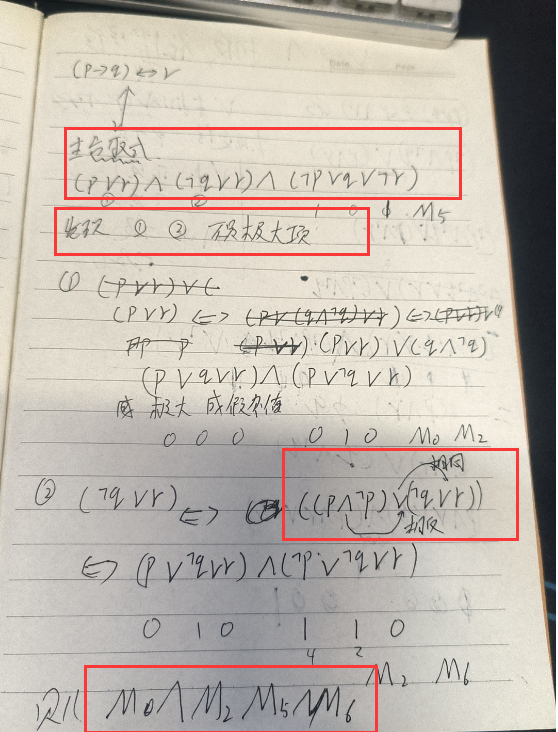 (p→q)⇔r
主合取式
(p∨r)∧(¬q∨r)∧(¬p∨q∨¬r)
① ②
1 0 1 M5
发现 ① ② 不是极大项
①
(p∨r) ⇔
(p∨r)∨(q∧¬q)
(p∨q∨r)∧(p∨¬q∨r)
极大 成假赋值
0 0 0 0 1 0 M0 M2
相同
② (¬q∨r) ⇔ ((p∧¬p)∨(¬q∨r))
相反
⇔ (p∨¬q∨r)∧(¬p∨¬q∨r)
0 1 0 1 1 0
4 2
M2 M6
则 M0∧M2 M5∧M6